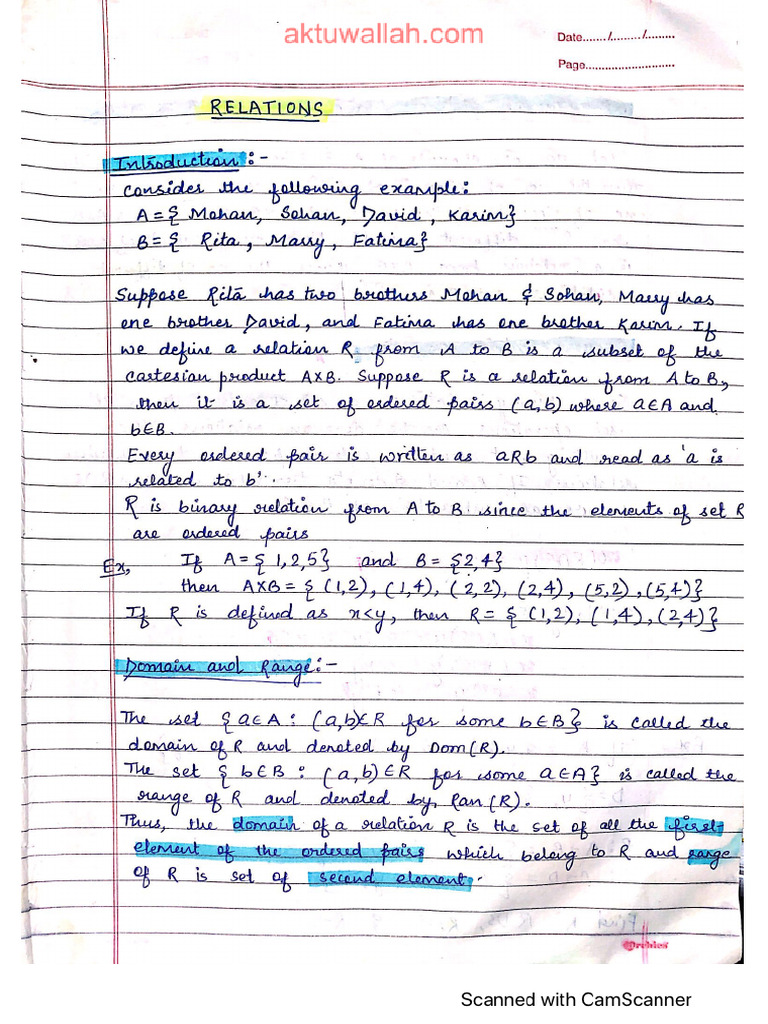 aktuwallah.com
Date....../........./........
Page...........................
RELATIONS
Introduction :-
Consider the following example:
A = { Mohan, Sohan, David, Karim}
B = { Rita, Marry, Fatima}
Suppose Rita has two brothers Mohan & Sohan, Marry has
one brother David, and Fatima has one brother Karim. If
we define a relation R from A to B is a subset of the
Cartesian product A×B. Suppose R is a relation from A to B,
then it is a set of ordered pairs (a,b) where a∈A and
b∈B.
Every ordered pair is written as aRb and read as 'a is
related to b'.
R is binary relation from A to B since the elements of set R
are ordered pairs
Ex, If A = { 1,2,5} and B = {2,4}
then A×B = { (1,2), (1,4), (2,2), (2,4), (5,2), (5,4)}
If R is defined as x<y, then R = { (1,2), (1,4), (2,4)}
Domain and Range :-
The set { a∈A : (a,b)∈R for some b∈B} is called the
domain of R and denoted by Dom(R).
The set { b∈B : (a,b)∈R for some a∈A} is called the
range of R and denoted by Ran(R).
Thus, the domain of a relation R is the set of all the first
element of the ordered pairs which belong to R and range
of R is set of second element.
Scanned with CamScanner